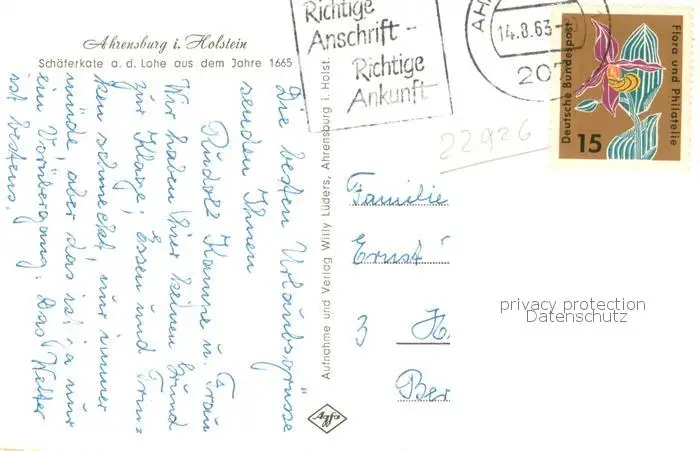 Ahrensburg i. Holstein
Schäferkate a. d. Lohe aus dem Jahre 1665
Die besten Urlaubsgrüsse
senden Ihnen
Rudolf Kampe u. Frau
Wir haben hier keinen Grund
zur Klage; Essen und Trin=
ken schmeckt, nur immer
müde, aber das ist ja nur
ein Vorübergang. Das Wetter
ist bestens.
Aufnahme und Verlag Willy Lüders, Ahrensburg i. Holst.
Agfa
Richtige
Anschrift -
Richtige
Ankunft
AH
14.8.63
207
22926
Deutsche Bundespost
15
Flora und Philatelie
Familie
Ernst
3 H
Ber
privacy protection
Datenschutz